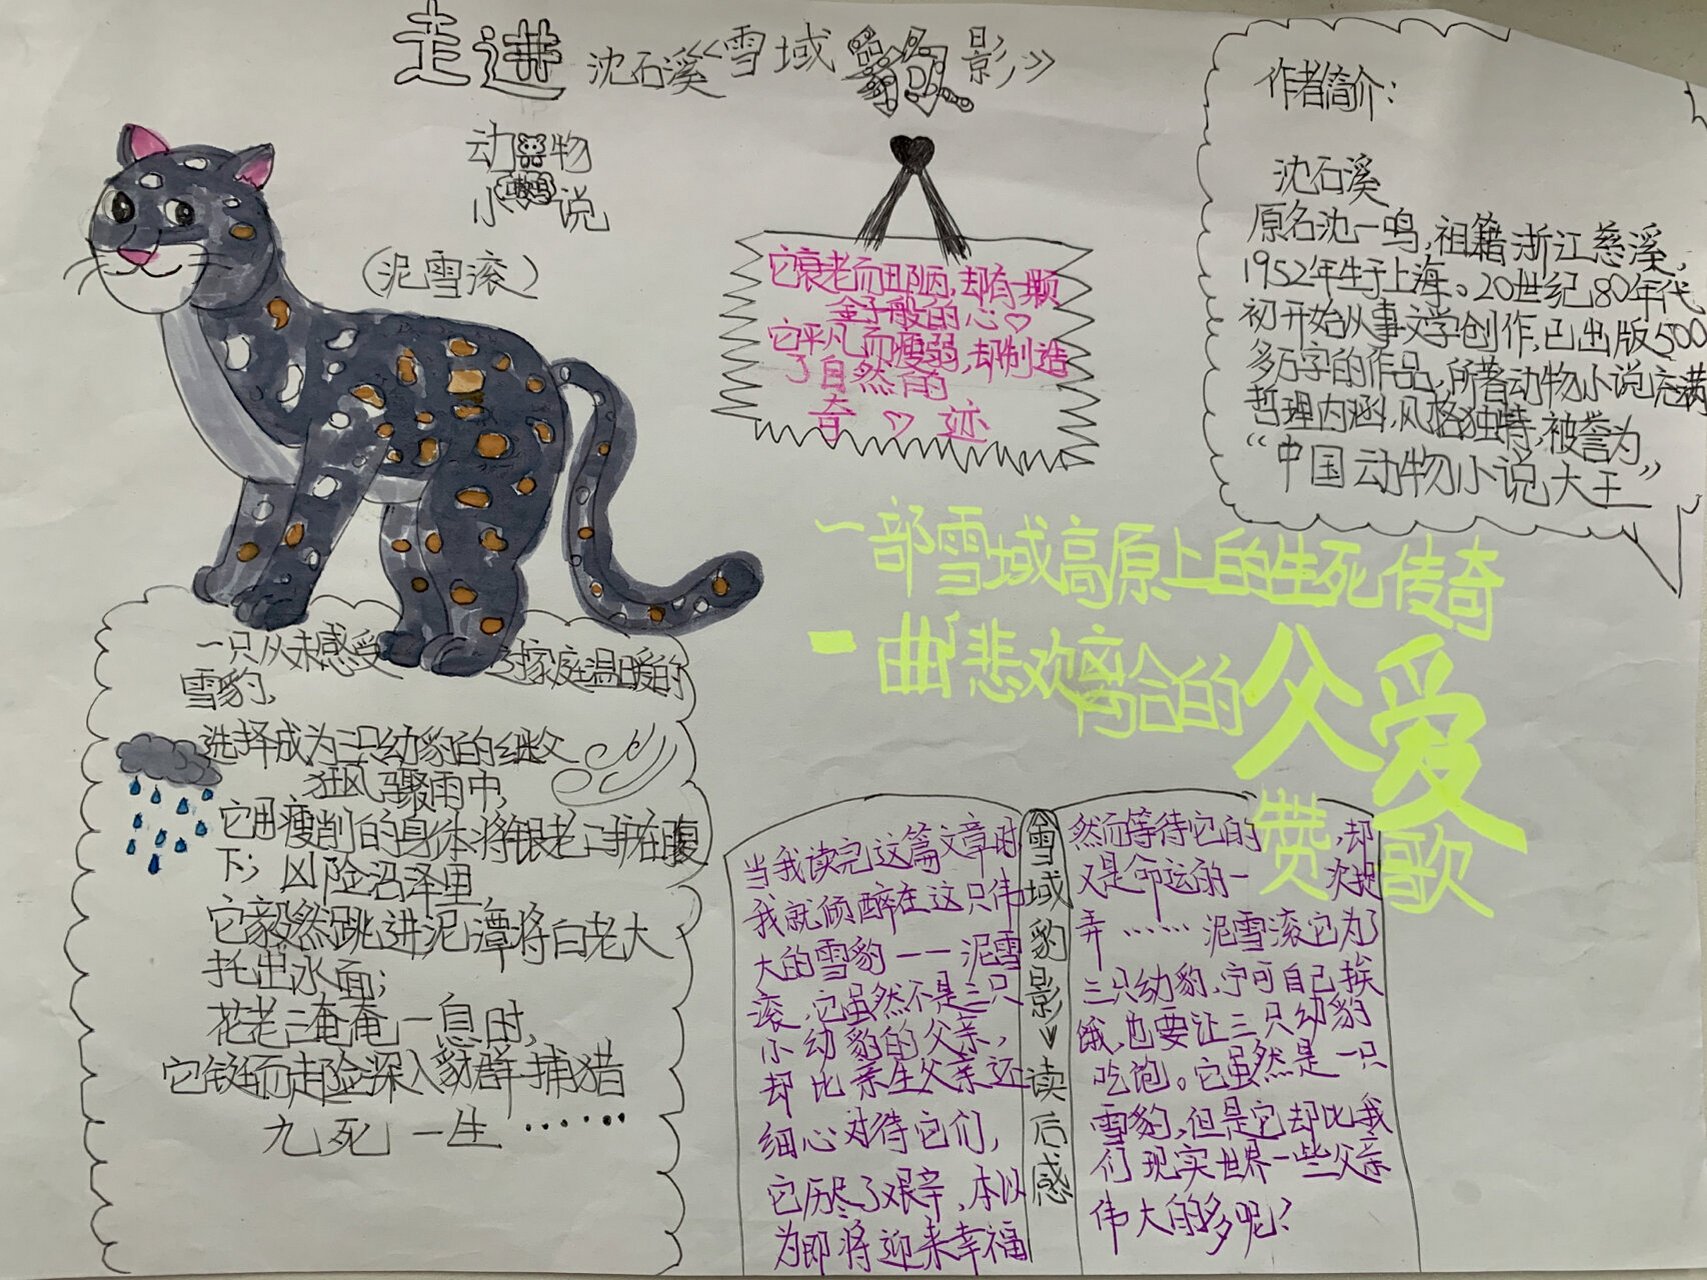 走进沈石溪《雪域豹影》
动物
小说
(泥雪滚)
它衰老而丑陋,却有一颗
金子般的心
它平凡而瘦弱,却制造
了自然的
奇迹
作者简介:
沈石溪
原名沈一鸣,祖籍浙江慈溪,
1952年生于上海。20世纪80年代
初开始从事文学创作,已出版500
多万字的作品,所著动物小说充满
哲理内涵,风格独特,被誉为
“中国动物小说大王”
一部雪域高原上的生死传奇
一曲悲欢离合的父爱
赞歌
一只从未感受过家庭温暖的
雪豹,
选择成为三只幼豹的继父
狂风骤雨中,
它用瘦削的身体将银老二护在腹
下;凶险沼泽里
它毅然跳进泥潭将白老大
托出水面;
花老三奄奄一息时,
它铤而走险深入豺群捕猎
九死一生……
雪域豹影读后感
当我读完这篇文章时
我就倾醉在这只伟
大的雪豹——泥雪
滚,它虽然不是三只
小幼豹的父亲,
却比亲生父亲还
细心对待它们,
它历尽了艰辛,本以
为即将迎来幸福
然而等待它的,却
又是命运的一次捉
弄……泥雪滚它为了
三只幼豹,宁可自己挨
饿,也要让三只幼豹
吃饱。它虽然是一只
雪豹,但是它却比我
们现实世界一些父亲
伟大的多呢?